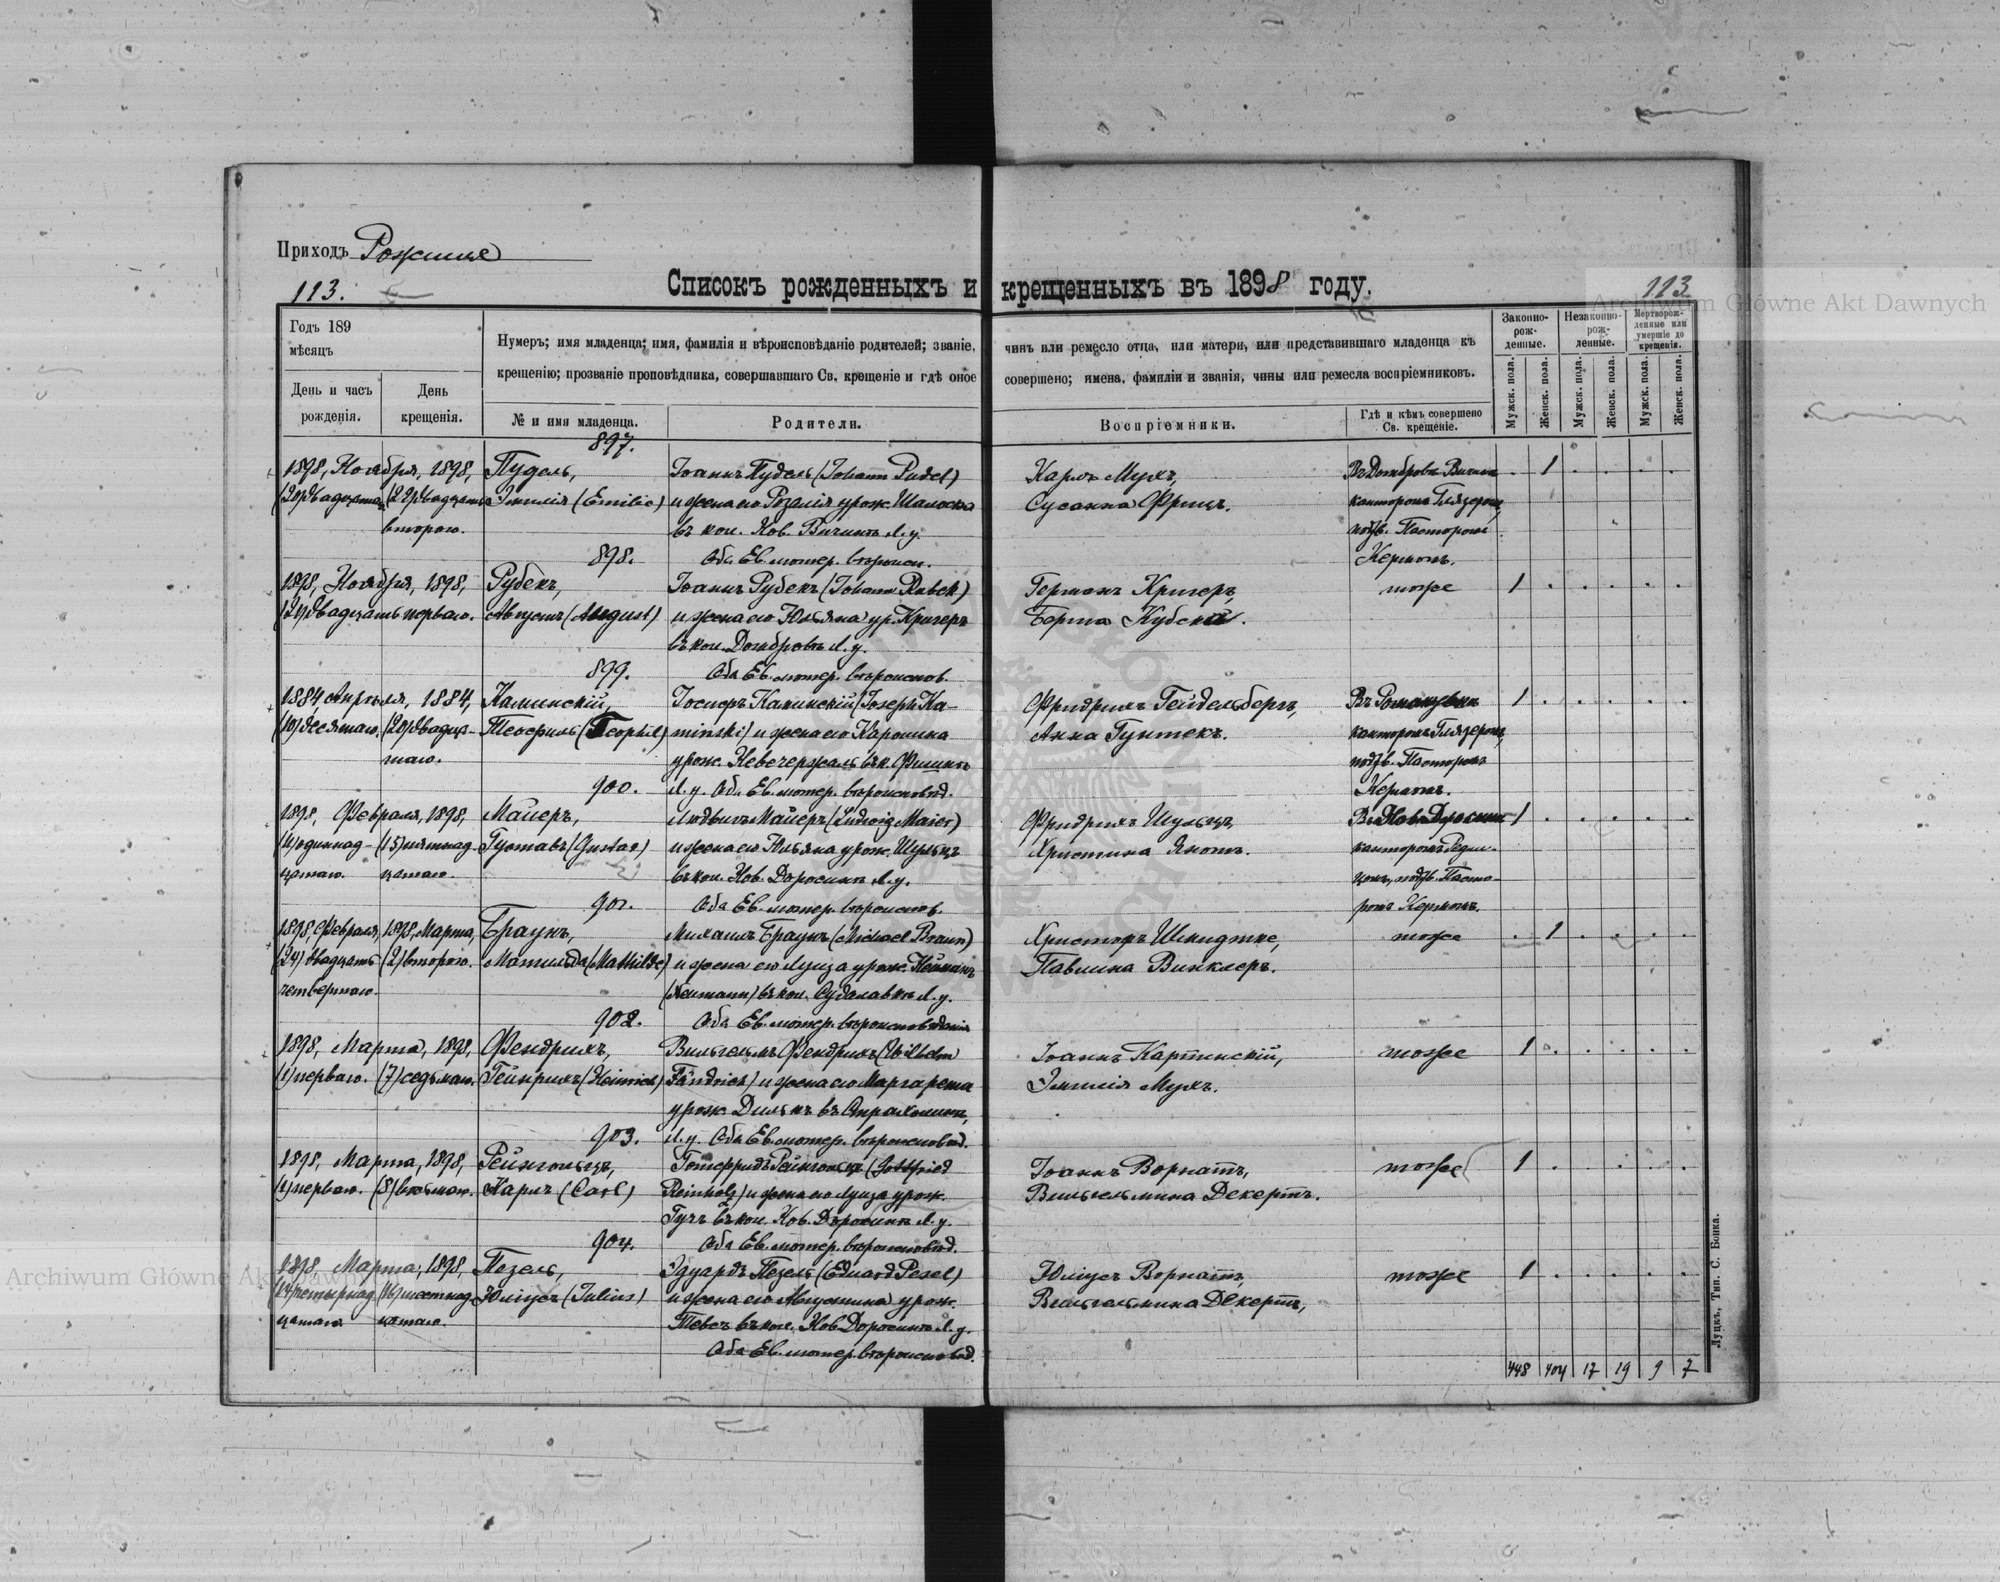 Приходъ Рожище
113.
113.
Списокъ рожденныхъ и крещенныхъ въ 1898 году.
Archiwum Główne Akt Dawnych
Годъ 189
мѣсяцъ
День и часъ рожденія.
День крещенія.
Нумеръ; имя младенца; имя, фамилія и вѣроисповѣданіе родителей; званіе, чинъ или ремесло отца, или матери, или представившаго младенца къ
крещенію; прозваніе проповѣдника, совершавшаго Св. крещеніе и гдѣ оное совершено; имена, фамиліи и званія, чины или ремесла воспріемниковъ.
№ и имя младенца.
Родители.
Воспріемники.
Гдѣ и кѣмъ совершено Св. крещеніе.
Законно-рож-денные.
Незаконно-рож-денные.
Мертворож-денные или умершіе до крещенія.
Мужск. пола. Женск. пола. Мужск. пола. Женск. пола. Мужск. пола. Женск. пола.
897.
1898, Ноября, 1898, Пудель, Іоаннъ Пудель (Johann Pudel) Карлъ Мухъ, 1
(22) двадцать Эмилія (Emilie) и жена его Розалія урож. Сусанна Фрицъ. канторомъ Глязеромъ,
второго. въ кол. Нов. Вичинѣ Л. у. подтв. Пасторомъ
898. Оба Ев. лютер. вѣроисп. Керномъ.
1898, Ноября, 1898, Рубекъ, Іоаннъ Рубекъ (Johann Rubek) Германъ Кригеръ, тоже 1
(21) двадцать перваго. Августъ (August) и жена его Юльяна ур. Кригеръ Берта
въ кол. Домбровѣ Л. у.
899. Оба Ев. лютер. вѣроисповѣ.
1884 Апрѣля, 1884, Каминскій, Іосифъ Каминскій (Joseph Ka- Фридрихъ Гейдельбергъ, Въ Романувкѣ 1
(10) десятаго. (20) двадца- Теофиль (Teophil) minski) и жена его Каролина Анна Гунтекъ. канторомъ Глязеромъ,
таго. урож. подтв. Пасторомъ
900. Л. у. Оба Ев. лютер. вѣроисповѣд. Керномъ.
1898, Февраля, 1898, Майеръ, Людвигъ Майеръ (Ludwig Maier) Фридрихъ Шульцъ, Въ Нов. Доросинѣ 1
(11) одиннад- (15) пятнад- Густавъ (Gustav) и жена его Юльяна урож. Шульцъ Христина
цатаго. цатаго. въ кол. Нов. Доросинѣ Л. у. подтв. Пасто-
901. Оба Ев. лютер. вѣроисповѣ. ромъ Керномъ.
1898, Февраля, 1898 Марта, Браунъ, Михаилъ Браунъ (Michael Braun) Христофъ тоже 1
(24) двадцать (2) второго. Матильда (Mathilde) и жена его Луиза урож. Нейманъ Павлина Винклеръ.
четвертаго. (Neumann) въ кол. Л. у.
902. Оба Ев. лютер. вѣроисповѣданія
1898, Марта, 1898, Фендрихъ, Вильгельмъ Фендрихъ (Wilhelm Іоаннъ Карпинскій, тоже 1
(1) перваго. (7) седьмаго. Гейнрихъ (Heinrich) Fändrich) и жена его Маргарета Эмилія Мухъ.
903. Л. у. Оба Ев. лютер. вѣроисповѣд.
1898, Марта, 1898, Рейнгольцъ, Готфридъ Рейнгольцъ (Gottfried Іоаннъ Ворнатъ, тоже 1
(1) перваго. (8) восьмаго. Карлъ (Carl) Reinholz) и жена его Луиза урож. Вильгельмина Декертъ.
въ кол. Нов. Доросинѣ Л. у.
904. Оба Ев. лютер. вѣроисповѣд.
1898 Марта, 1898, Пезель, Эдуардъ Пезель (Eduard Pesel) Юліусъ Ворнатъ, тоже 1
(14) четырнад (16) шестнад Юліусъ (Julius) и жена его Августина урож. Вильгельмина Декертъ,
цатаго цатаго. въ кол. Нов. Доросинѣ Л. у.
Оба Ев. лютер. вѣроисповѣд.
448 404 17 19 9 7
Луцкъ, Тип. С. Бонка.
Archiwum Główne Akt Dawnych